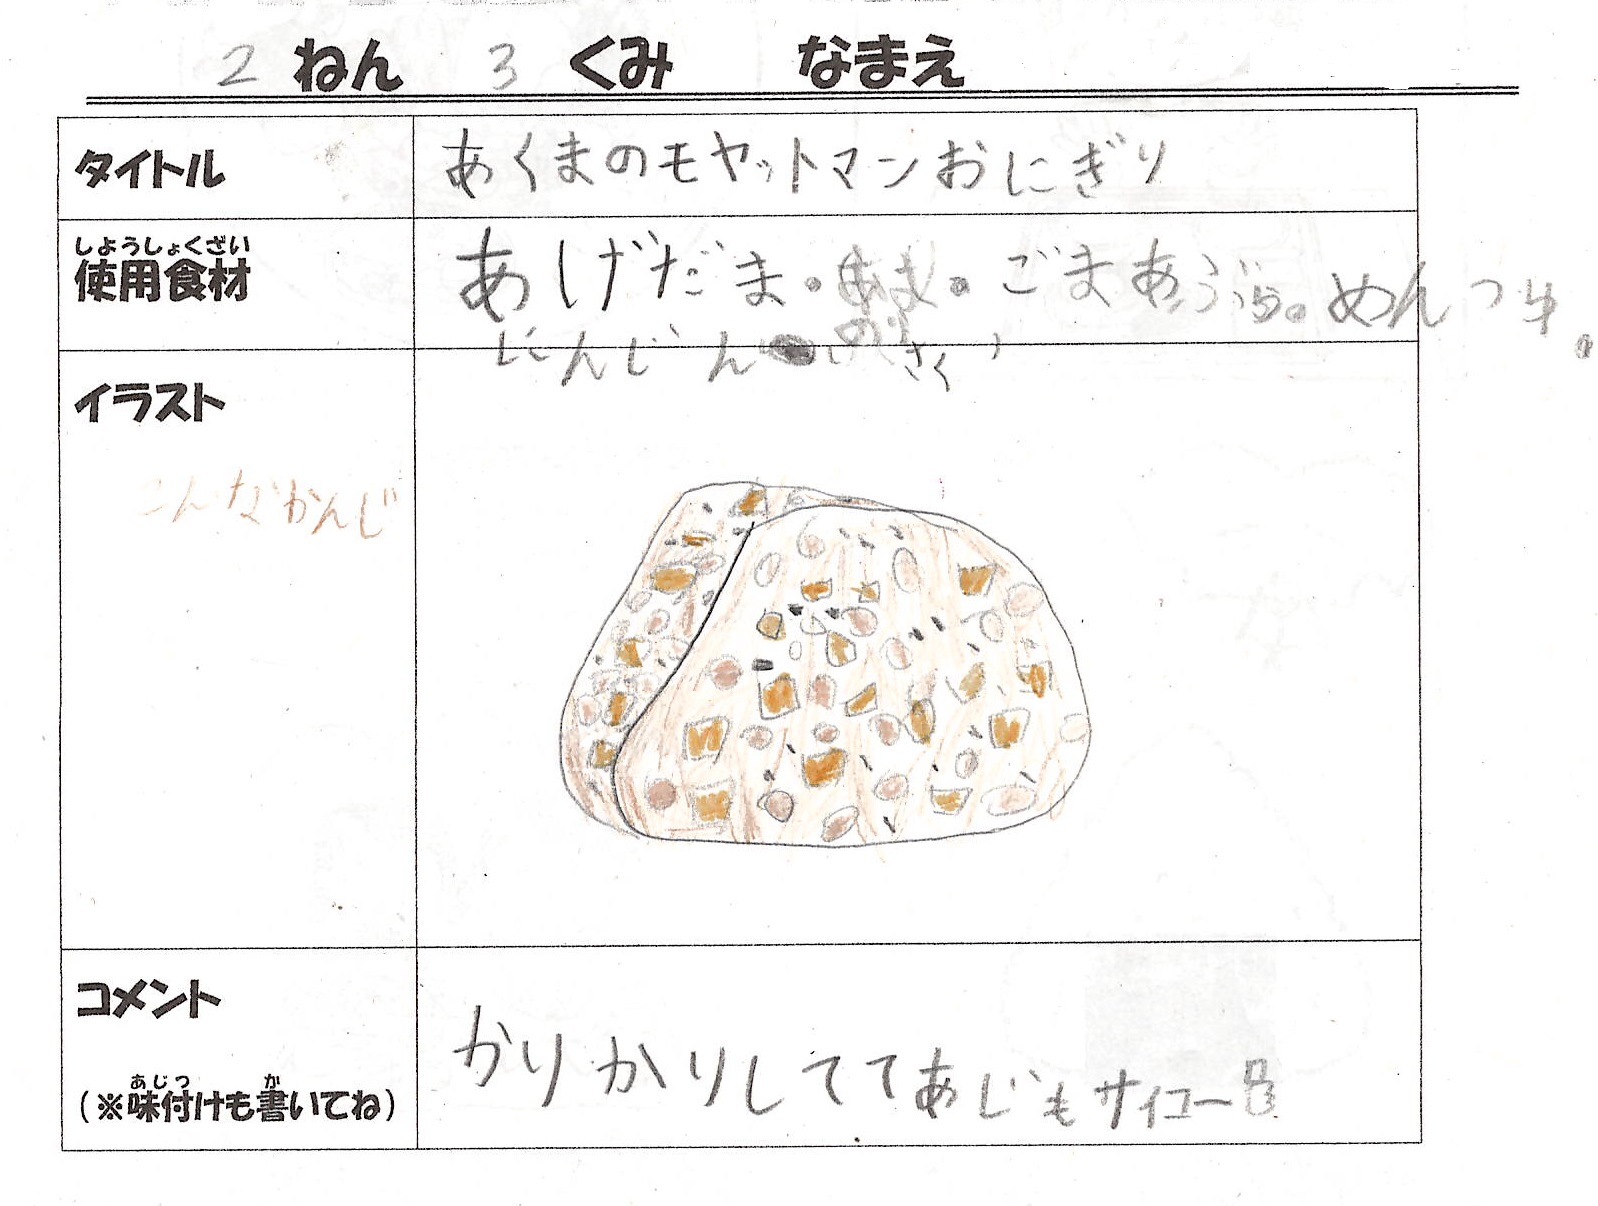 2 ねん 3 くみ なまえ
タイトル
あくまのモヤットマンおにぎり
しようしょくざい
使用食材
あげだま。
。ごまあぶら。めんつゆ。
にんじん
イラスト
こんなかんじ
コメント
あじつ か
(※味付けも書いてね)
かりかりしててあじもサイコー